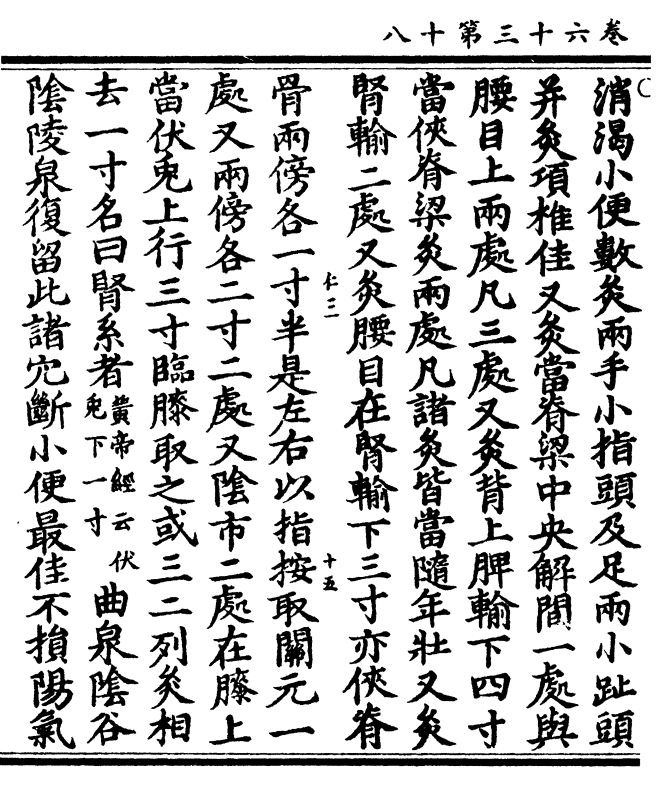 卷六十三第十八
消渴小便數灸兩手小指頭及足兩小趾頭
并灸項椎佳又灸當脊梁中央解間一處與
腰目上兩處凡三處又灸背上脾輸下四寸
當俠脊梁灸兩處凡諸灸皆當隨年壯又灸
腎輸二處又灸腰目在腎輸下三寸亦俠脊
仁三
十五
骨兩傍各一寸半是左右以指按取關元一
處又兩傍各二寸二處又陰市二處在膝上
當伏兎上行三寸臨膝取之或三二列灸相
去一寸名曰腎系者黃帝經云伏兎下一寸曲泉陰谷
陰陵泉復留此諸穴斷小便最佳不損陽氣